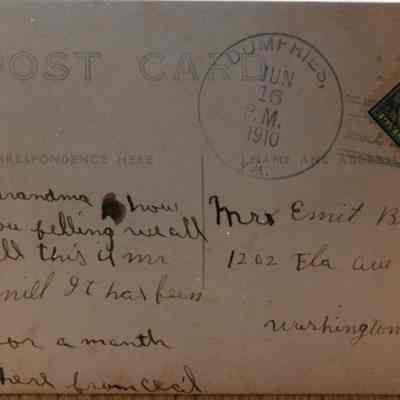 POST CARD
DUMFRIES,
JUN
16
P.M.
1910
A.
CORRESPONDENCE HERE
NAME AND ADDRESS
grandma how
you felling we all
ll this is mr
It has been
for a month
here from cecil
Mrs Emit B
1202 Ela Ave
Washington